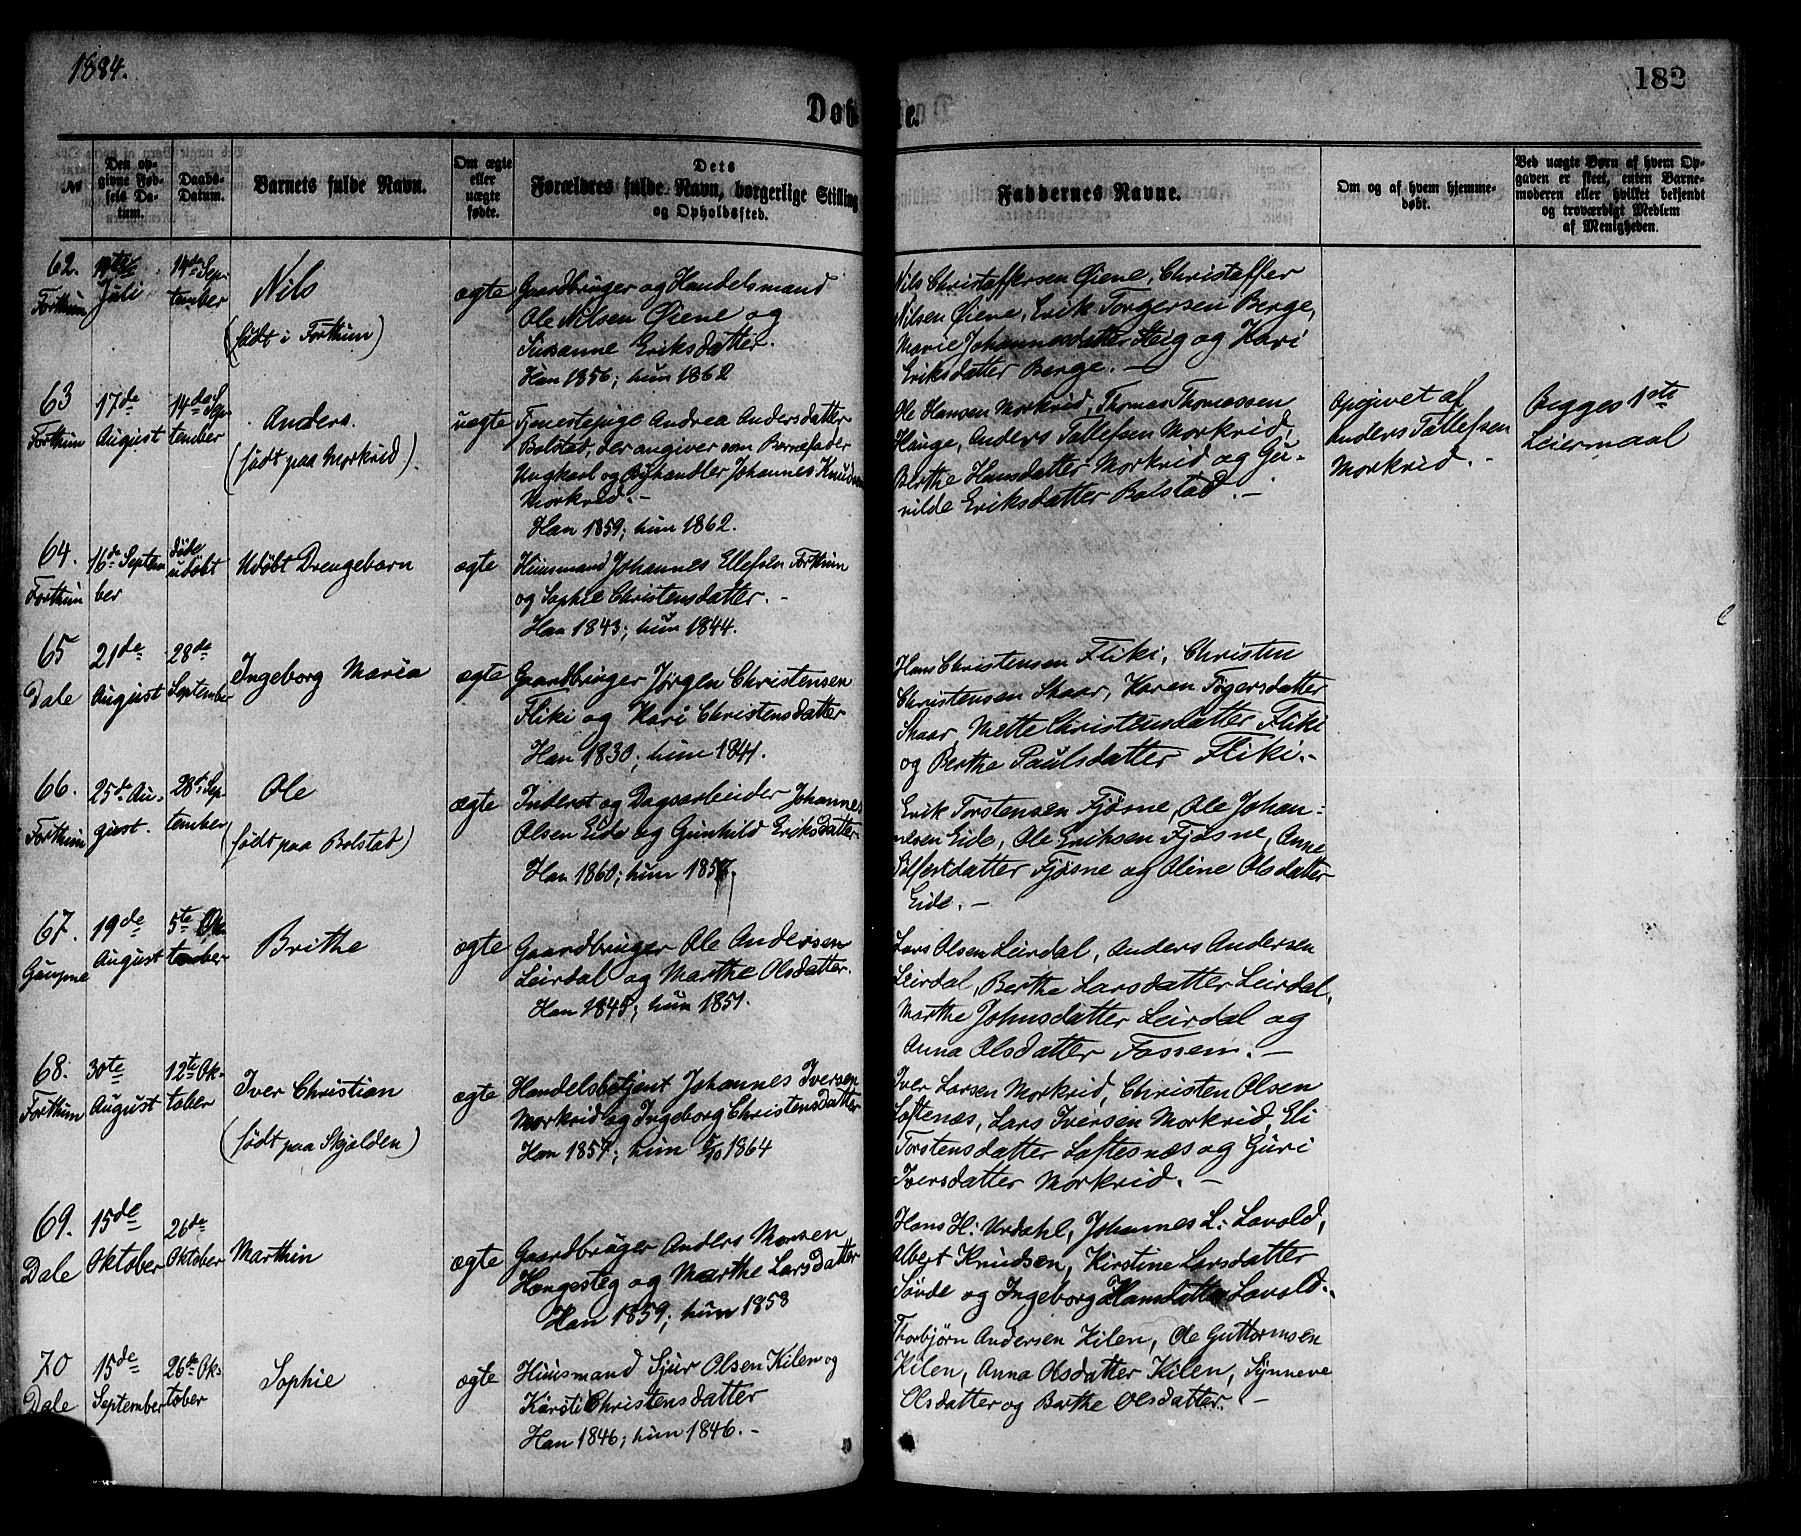 1884.
182
Døbte.
№
Den opgivne Fødsels Datum.
Daabs-Datum.
Barnets fulde Navn.
Om ægte eller uægte fødte.
Dets Forældres fulde Navn, borgerlige Stilling og Opholdssted.
Faddernes Navne.
Om og af hvem hjemmedøbt.
Ved uægte Børn af hvem Opgaven er skeet, enten Barnemoderen eller hvilket bekjendt og troværdigt Medlem af Menigheden.
62. Forthun
Juli
14de September
Nils
(født i Forthun)
ægte
Gaardbruger og Handelsmand
Ole Nilsen Øiene og
Susanne Eriksdatter.
Han 1856; hun 1862
Nils Christoffersen Øiene, Christoffer
Nilsen Øiene, Erik Torgersen Berge,
Marie Johannesdatter Steig og Kari
Eriksdatter Berge. —
63 Forthun
17de August
14de September
Anders.
(født paa Morkrid).
uægte
Tjenestepige Andrea Andersdatter
Bolstad, der angiver som Barnefader
Ungkarl og Øghandler Johannes Knudsen
Morkrid. —
Han 1859; hun 1862.
Ole Hansen Morkrid, Thomas Thomassen
Hauge, Anders Tollefsen Morkrid,
Berthe Hansdatter Morkrid og Gu-
nilde Eriksdatter Bolstad. —
Opgivet af
Anders Tollefsen
Morkrid. —
Begges 1ste
Leiermaal
64. Forthun
16de September
døde udøbt
Udøbt Drengebarn
ægte
Huusmand Johannes Ellefsen Forthun
og Sophie Christensdatter. —
Han 1843; hun 1844.
65 Dale
21de August
28de September
Ingeborg Maria
ægte
Gaardbruger Jørgen Christensen
Fliki og Kari Christensdatter
Han 1830; hun 1844.
Hans Christensen Fliki, Christen
Christensen Skaar, Karen Tøgersdatter
Skaar, Mette Christensdatter Fliki
og Berthe Paulsdatter Fliki. —
66. Forthun
25de August.
28de September
Ole
(født paa Bolstad)
ægte
Inderst og Dagsarbeider Johannes
Olsen Eide og Gunhild Eriksdatter
Han 1860; hun 1857.
Erik Torstensen Fjøsne, Ole Johan-
nesen Eide, Ole Eriksen Fjøsne, Anne
Sølfestdatter Fjøsne og Oline Olsdatter
Eide. —
67. Gaupne
19de August
5te Oktober
Brithe
ægte
Gaardbruger Ole Andersen
Leirdal og Marthe Olsdatter.
Han 1845; hun 1851.
Lars Olsen Leirdal, Anders Andersen
Leirdal, Berthe Larsdatter Leirdal,
Marthe Johnsdatter Leirdal og
Anna Olsdatter Fossen. —
68. Forthun
30te August
12te Oktober
Iver Christian
(født paa Skjolden)
ægte
Handelsbetjent Johannes Iversen
Morkrid og Ingeborg Christensdatter
Han 1857; hun 5/10 1864
Iver Larsen Morkrid, Christen Olsen
Loftenæs, Lars Iversen Morkrid, Eli
Torstensdatter Loftesnæs og Guri
Iversdatter Morkrid. —
69. Dale
15de Oktober
26de Oktober
Marthin
ægte
Gaardbruger Anders Monsen
Hængesteg og Marthe Larsdatter
Han 1859; hun 1858
Hans H: Urdahl, Johannes L: Lavold,
Albert Knudsen, Kirstine Larsdatter
Søvde og Ingeborg Hansdatter Lavold.
70 Dale
15de September
26de Oktober
Sophie
ægte
Huusmand Sjur Olsen Kilen og
Kårsti Christensdatter
Han 1846; hun 1846. —
Thorbjørn Andersen Kilen, Ole Guttormsen
Kilen, Anna Olsdatter Kilen, Synneve
Olsdatter og Berthe Olsdatter. —